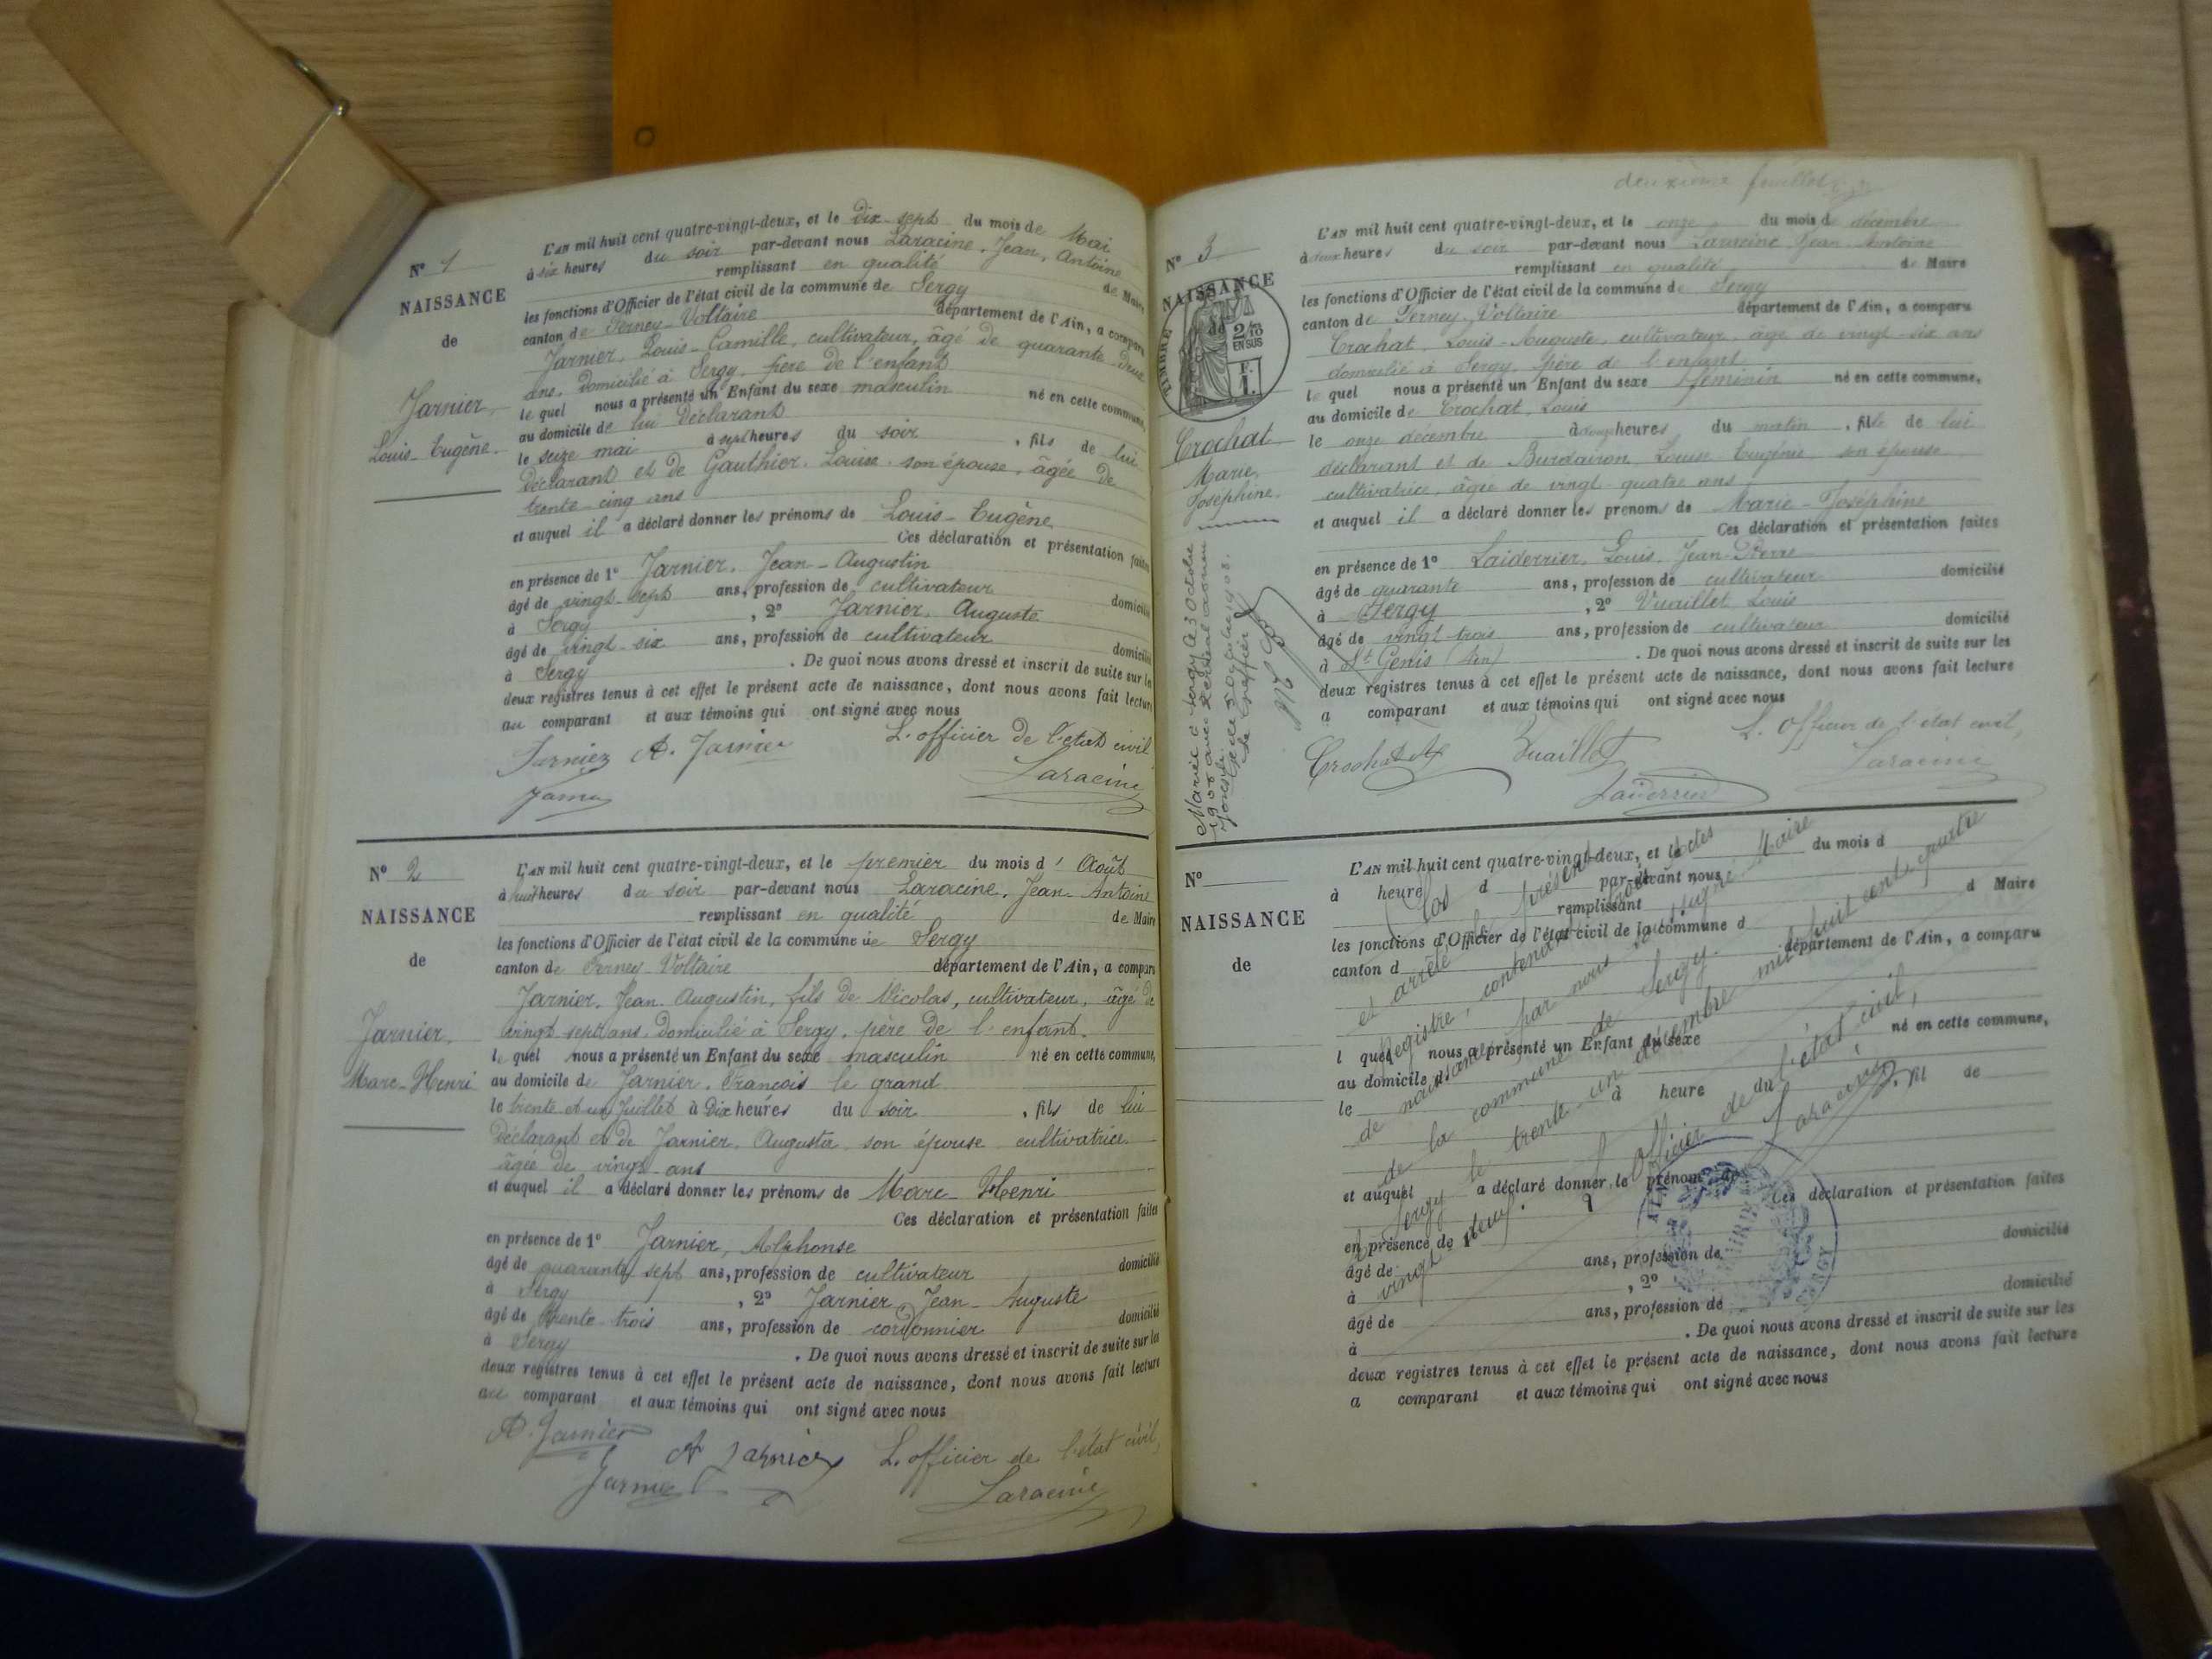 N° 1
NAISSANCE
de
Jarnier,
Louis-Eugène.
L'AN mil huit cent quatre-vingt-deux, et le Dix-sept du mois de Mai
à six heures du soir par-devant nous Laracine, Jean, Antoine
remplissant en qualité de Maire
les fonctions d'Officier de l'état civil de la commune de Sergy
canton de Ferney-Voltaire département de l'Ain, a comparu
Jarnier, Louis-Camille, cultivateur, âgé de quarante deux
ans, domicilié à Sergy, père de l'enfant
le quel nous a présenté un Enfant du sexe masculin né en cette commune,
au domicile de lui Déclarant
le seize mai à sept heures du soir, fils de lui
Déclarant et de Gauthier, Louise, son épouse, âgée de
trente-cinq ans
et auquel il a déclaré donner les prénoms de Louis-Eugène
Ces déclaration et présentation faites
en présence de 1° Jarnier, Jean-Augustin
âgé de vingt-sept ans, profession de cultivateur domicilié
à Sergy, 2° Jarnier, Auguste
âgé de vingt-six ans, profession de cultivateur domicilié
à Sergy. De quoi nous avons dressé et inscrit de suite sur les
deux registres tenus à cet effet le présent acte de naissance, dont nous avons fait lecture
au comparant et aux témoins qui ont signé avec nous
Jarnier A. Jarnier L'officier de l'état civil
Laracine
N° 2
NAISSANCE
de
Jarnier,
Marc-Henri
L'AN mil huit cent quatre-vingt-deux, et le premier du mois d'Août
à huit heures du soir par-devant nous Laracine, Jean-Antoine
remplissant en qualité de Maire
les fonctions d'Officier de l'état civil de la commune de Sergy
canton de Ferney-Voltaire département de l'Ain, a comparu
Jarnier, Jean Augustin, fils de Nicolas, cultivateur, âgé de
vingt sept ans, domicilié à Sergy, père de l'enfant.
le quel nous a présenté un Enfant du sexe masculin né en cette commune,
au domicile de Jarnier, François le grand
le trente et un Juillet à Dix heures du soir, fils de lui
Déclarant et de Jarnier, Augusta son épouse cultivatrice
âgée de vingt-ans
et auquel il a déclaré donner les prénoms de Marc-Henri
Ces déclaration et présentation faites
en présence de 1° Jarnier, Alphonse
âgé de quarante sept ans, profession de cultivateur domicilié
à Sergy, 2° Jarnier Jean-Auguste
âgé de trente-trois ans, profession de cordonnier domicilié
à Sergy. De quoi nous avons dressé et inscrit de suite sur les
deux registres tenus à cet effet le présent acte de naissance, dont nous avons fait lecture
au comparant et aux témoins qui ont signé avec nous
A. Jarnier A Jarnier L'officier de l'état civil,
Laracine
deuxième feuillet
N° 3
NAISSANCE
de
TIMBRE
2/10
EN SUS
F.
1.
Crochat
Marie
Joséphine.
Mariée à Sergy le 3 Octobre
L'AN mil huit cent quatre-vingt-deux, et le onze du mois de décembre
à deux heures du soir par-devant nous Laracine Jean-Antoine
remplissant en qualité de Maire
les fonctions d'Officier de l'état civil de la commune de Sergy
canton de Ferney-Voltaire département de l'Ain, a comparu
Crochat, Louis-Auguste, cultivateur, âgé de vingt-six ans
domicilié à Sergy, père de l'enfant
le quel nous a présenté un Enfant du sexe féminin né en cette commune,
au domicile de Crochat, Louis
le onze décembre à heures du matin, fille de lui
déclarant et de Burdairon, Louise-Eugénie son épouse
cultivatrice, âgée de vingt-quatre ans
et auquel il a déclaré donner les prénoms de Marie-Joséphine
Ces déclaration et présentation faites
en présence de 1° Laiderrier, Louis, Jean-Pierre
âgé de quarante ans, profession de cultivateur domicilié
à Sergy, 2° Vuaillet Louis
âgé de vingt trois ans, profession de cultivateur domicilié
à St Genis (Ain). De quoi nous avons dressé et inscrit de suite sur les
deux registres tenus à cet effet le présent acte de naissance, dont nous avons fait lecture
a comparant et aux témoins qui ont signé avec nous
L'officier de l'état civil,
Crochat Vuaillet Laracine
Laiderrier
N°
NAISSANCE
de
L'AN mil huit cent quatre-vingt-deux, et le du mois d
à heure d par-devant nous
remplissant d Maire
les fonctions d'Officier de l'état civil de la commune d
canton d département de l'Ain, a comparu
l quel nous a présenté un Enfant du sexe né en cette commune,
au domicile d
le à heure du, fil de
et auquel a déclaré donner le prénom de
Ces déclaration et présentation faites
en présence de 1°
âgé de ans, profession de domicilié
à, 2°
âgé de ans, profession de domicilié
à. De quoi nous avons dressé et inscrit de suite sur les
deux registres tenus à cet effet le présent acte de naissance, dont nous avons fait lecture
a comparant et aux témoins qui ont signé avec nous
Clos
et arrêté le présent
registre, contenant trois actes
de naissance par nous soussigné Maire
de la commune de Sergy.
Sergy le trente-un décembre mil huit cent quatre
vingt deux.
L'Officier de l'état civil,
Laracine
MAIRIE
SERGY
AIN